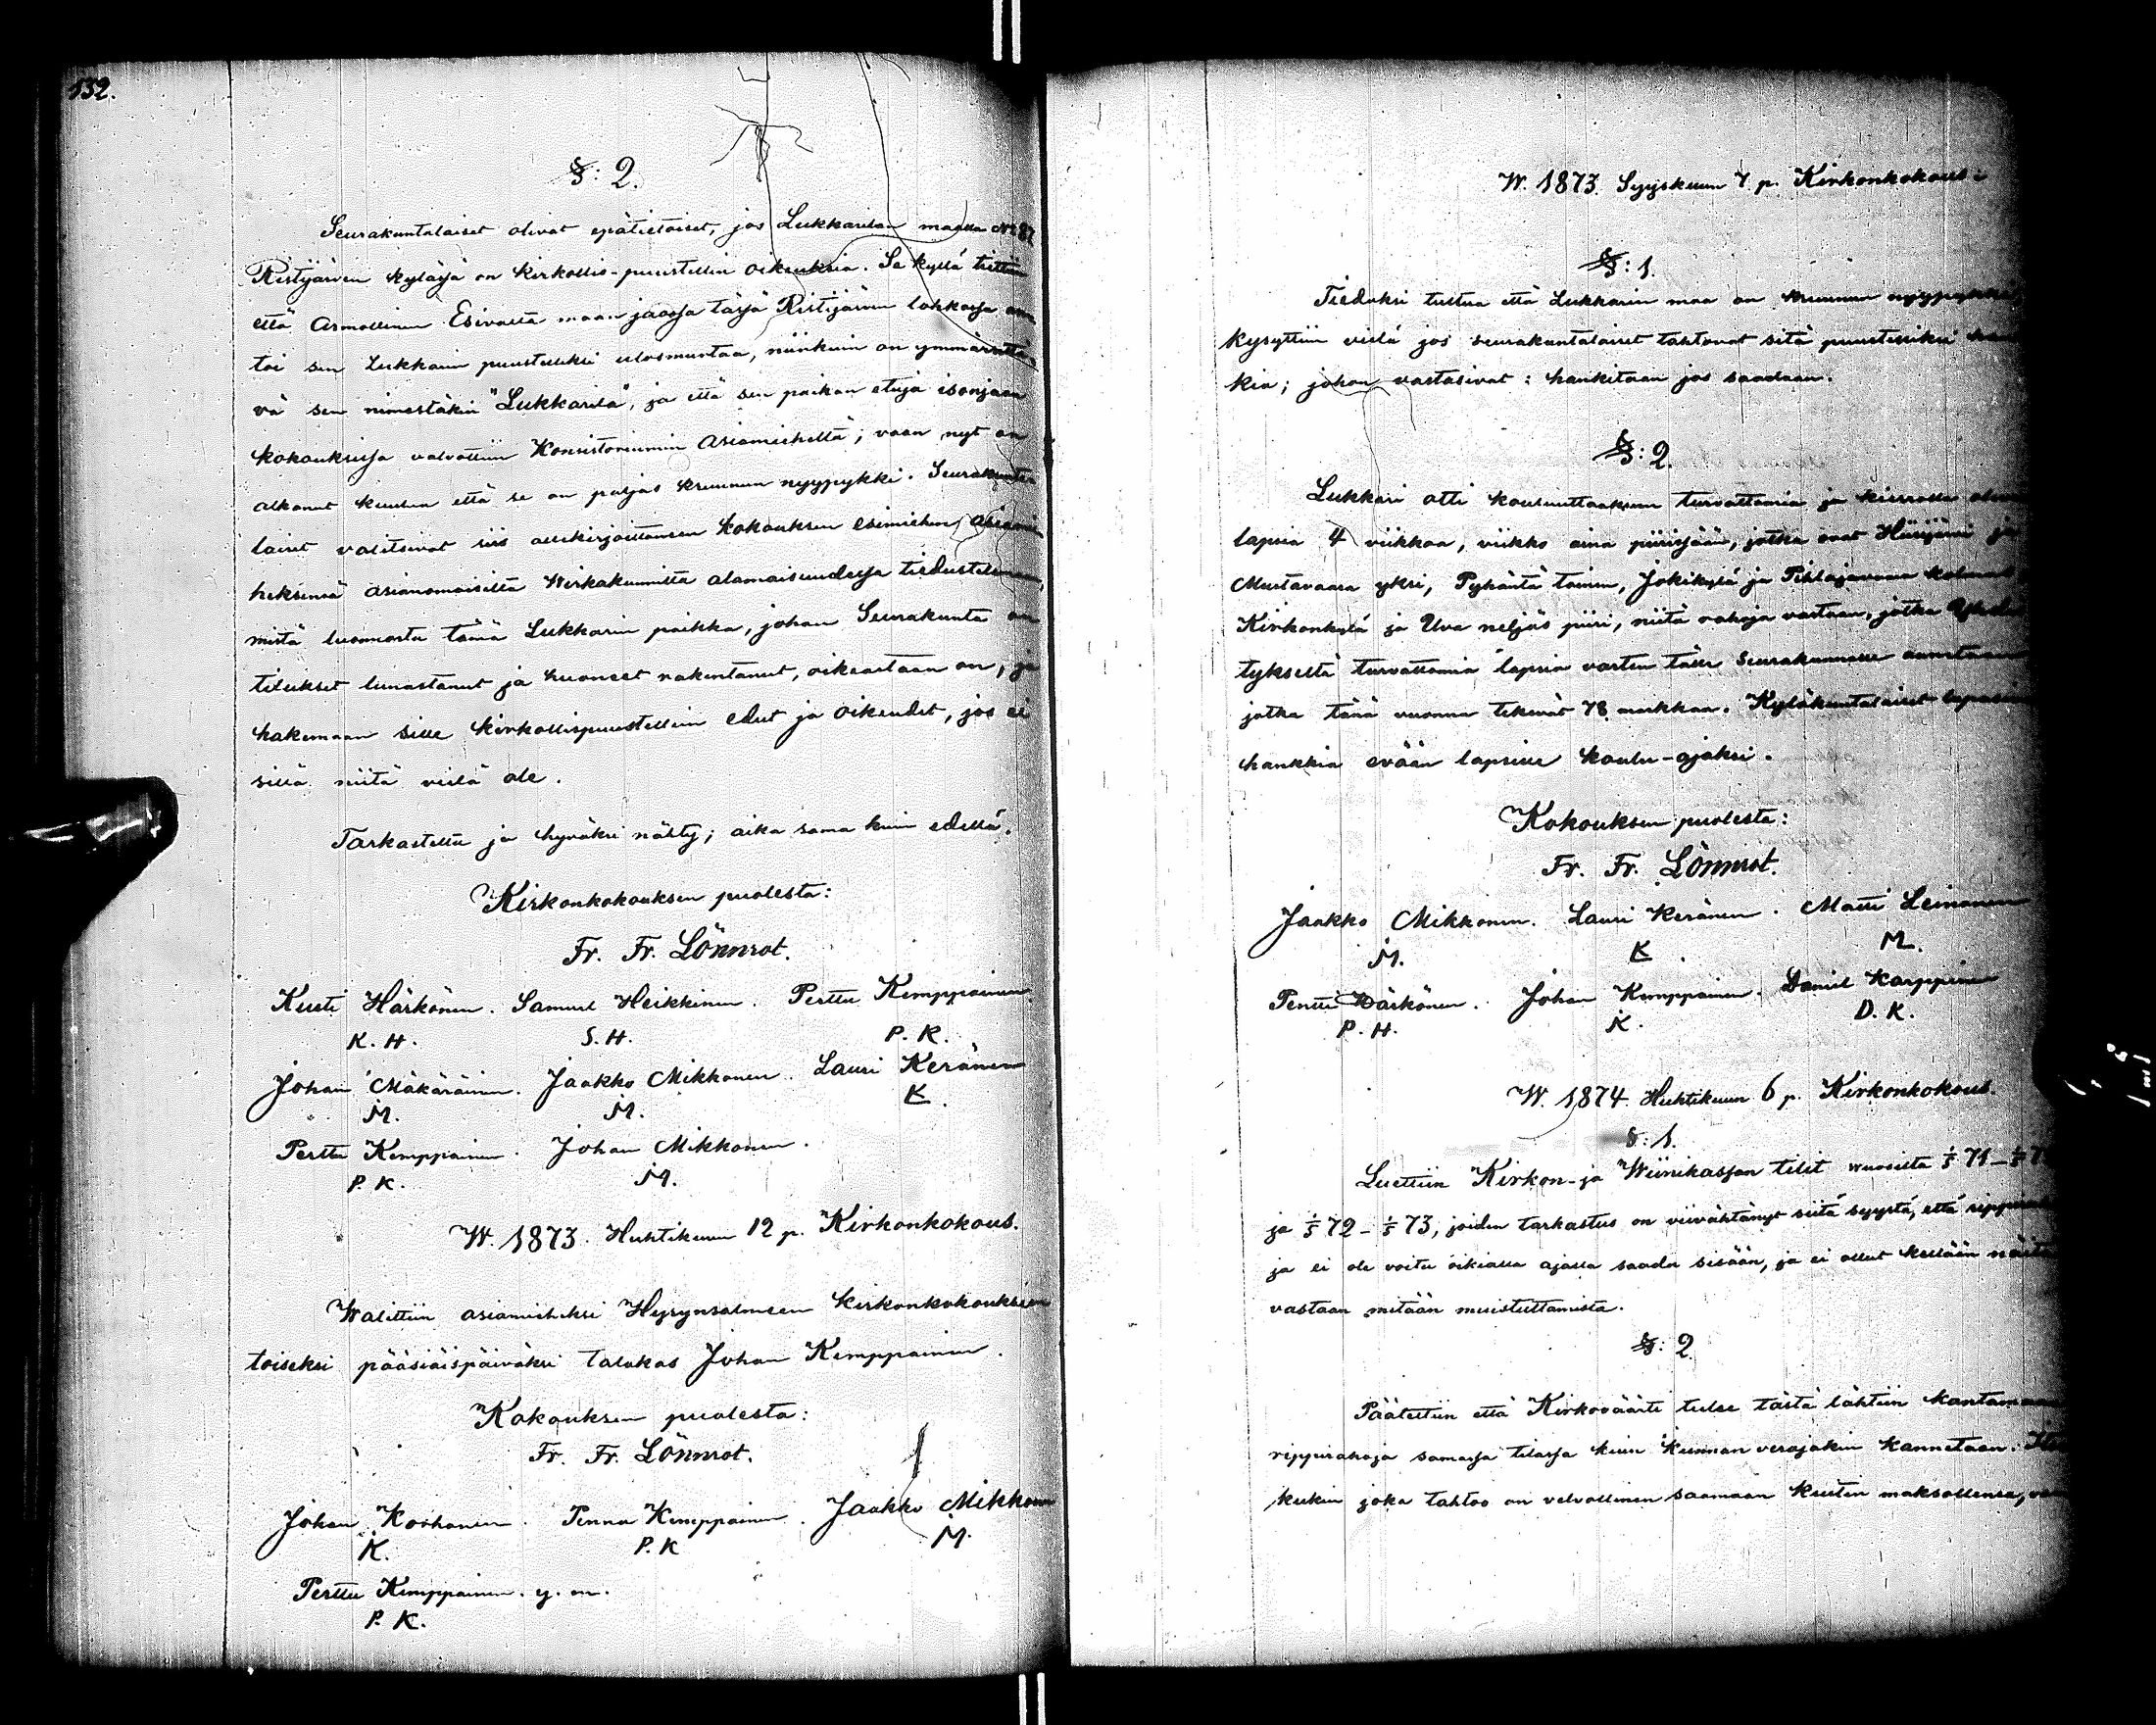 132.
§: 2.
Seurakuntalaiset olivat epätietoiset, jos Lukkarilan maalla № 87
Ristijärven kylässä on kirkollis-puustellin oikeuksia. Se kyllä tiettiin
että Armollinen Esivalta maan jaossa tässä Ristijärven lohkossa an-
toi sen Lukkarin puustelliksi ulosmuntaa, niinkuin on ymmärrettä-
vä sen nimestäkin "Lukkarila", ja että sen paikan etuja isonjaon
kokouksissa valvottiin Konsistoriumin Asiamieheltä; vaan nyt on
alkanut kuulua että se on paljas kruunun nyypykki. Seurakunta-
laiset valitsivat siis allekirjoittaneen kokouksen esimiehen asiamie-
heksensä asianomaisilta Wirkakunnilta alamaisuudessa tiedustelemaan,
mistä luonnosta tämä Lukkarin paikka, johon Seurakunta on
tilukset lunastanut ja huoneet rakentanut, oikeastaan on, ja
hakemaan sille kirkollispuustellein edut ja oikeudet, jos ei
sillä niitä vielä ole.
Tarkastettu ja hyväksi nähty; aika sama kuin edellä.
Kirkonkokouksen puolesta:
Fr. Fr. Lönnrot.
Kusti Härkönen. Samuel Heikkinen. Perttu Kemppainen.
K. H. S. H. P. K.
Johan Mäkäräinen. Jaakko Mikkonen. Lauri Keränen
M. M. K.
Perttu Kemppainen. Johan Mikkonen.
P. K. M.
W. 1873. Huhtikuun 12 p. Kirkonkokous.
Walittiin asiamieheksi Hyrynsalmeen kirkonkokoukseen
toiseksi pääsiäispäiväksi talokas Johan Kemppainen.
Kokouksen puolesta:
Fr. Fr. Lönnrot.
Johan Korhonen. Penna Kemppainen. Jaakko Mikkonen
K. P. K M.
Perttu Kemppainen. y. m.
P. K.
W. 1873. Syyskuun 7 p. Kirkonkokous:
§: 1.
Tieduksi tultua että Lukkarin maa on kruunun nyypykki,
kysyttiin vielä jos seurakuntalaiset tahtovat sitä puustelliksi han-
kia; johon vastasivat: hankitaan jos saadaan.
§: 2.
Lukkari otti kouluuttaaksensa turvattomia ja kierrolla olevia
lapsia 4 viikkoa, viikko aina piirissään, jotka ovat Hiisijärvi ja
Mustavaara yksi, Pyhäntä toinen, Jokikylä ja Pihlajavaara kolmas
Kirkonkylä ja Uva neljäs piiri, niitä rahoja vastaan, jotka Yhdis-
tykseltä turvattomia lapsia varten tälle Seurakunnalle annetaan
jotka tänä vuonna tekevät 78 markkaa. Kyläkuntalaiset lupasivat
hankkia evään lapsille koulu-ajaksi.
Kokouksen puolesta:
Fr. Fr. Lönnrot.
Jaakko Mikkonen. Lauri Keränen. Matti Leinonen
M. K. M.
Pentti Härkönen. Johan Kemppainen. Daniel Karppinen
P. H. K. D. K.
W. 1874. Huhtikuun 6 p. Kirkonkokous.
§: 1.
Luettiin Kirkon- ja Wiinikassan tilit vuosilta 1/5 71 – 1/5 72
ja 1/5 72 – 1/5 73, joiden tarkastus on viivähtänyt siitä syystä, että rippirahoja
ja ei ole voitu oikialla ajalla saada sisään, ja ei ollut kellään näitä
vastaan mitään muistuttamista.
§: 2.
Päätettiin että Kirkoväärti tulee tästä lähtiin kantamaan
rippirahoja samassa tilassa kuin kunnan verojakin kannetaan.
kukin joka tahtoo on velvollinen saamaan kuitin maksollensa,